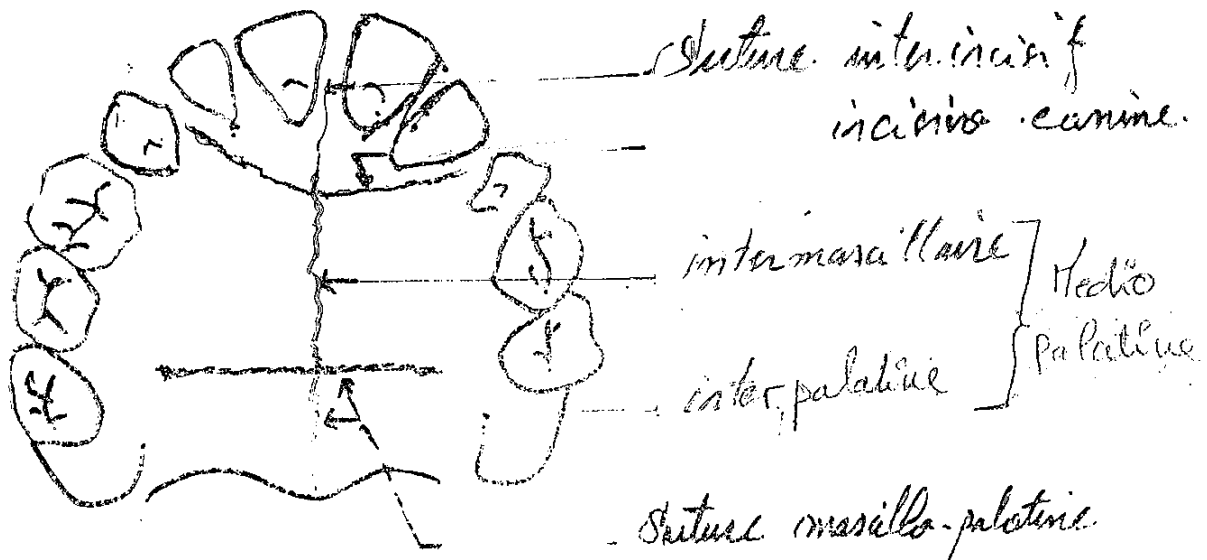 Suture inter.incisif
incisivo.canine.
intermaxillaire
Medio
palatine
interpalatine
Suture maxillo-palatine